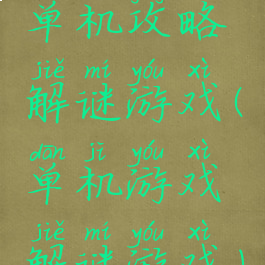 单机攻略
jiě mí yóu xì
解谜游戏(
dān jī yóu xì
单机游戏
jiě mí yóu xì
解谜游戏)